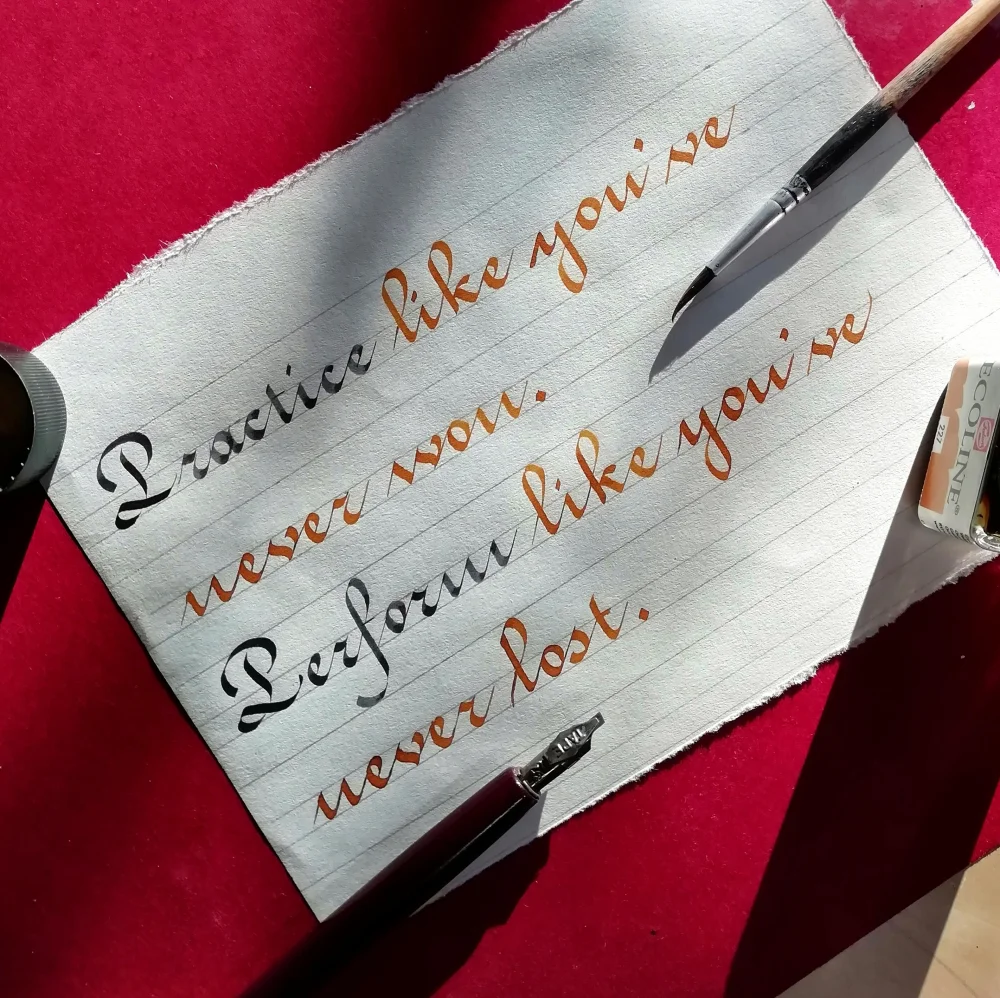 Practice like you've
never won.
Perform like you've
never lost.
ECOLINE®
227